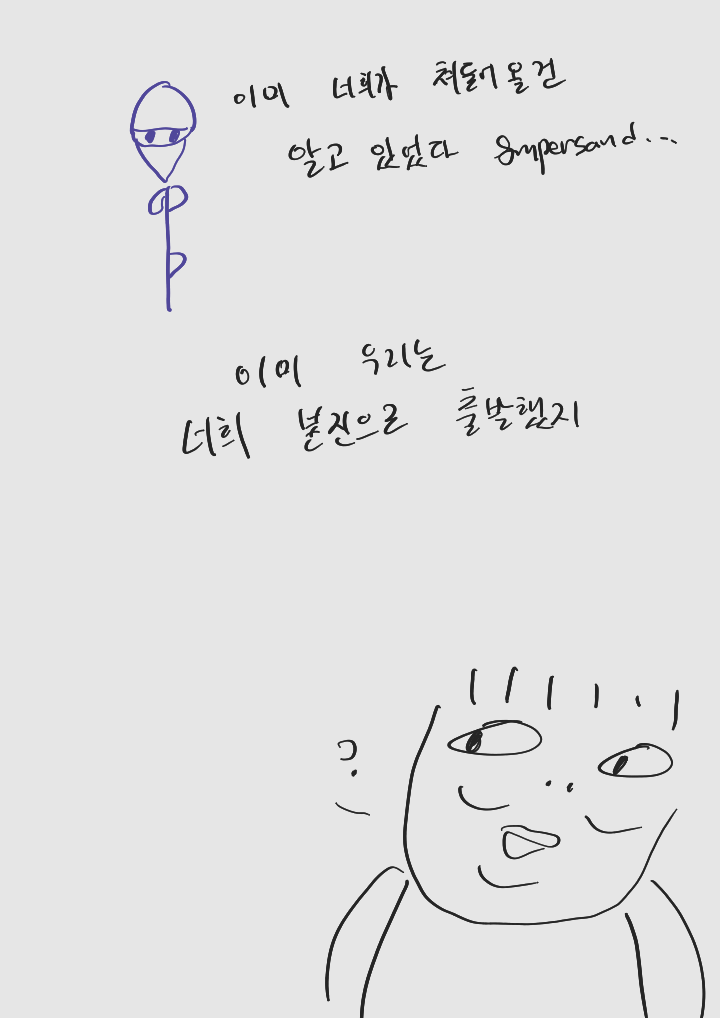 이미 너희가 쳐들어올건
알고 있었다 &mpersand...
이미 우리는
너희 본진으로 출발했지
?